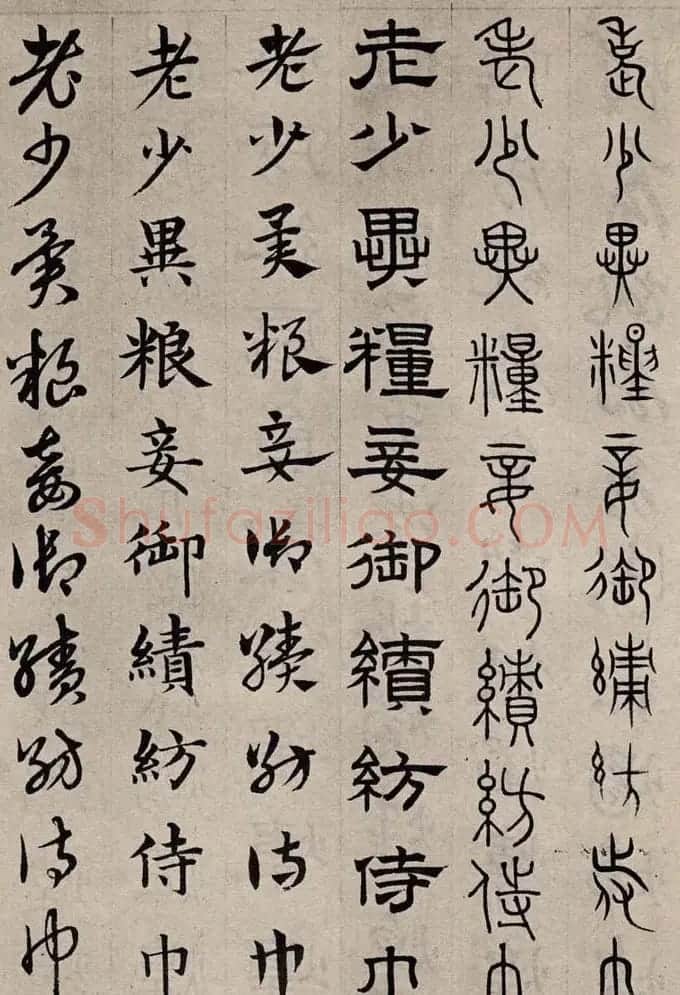 老少異糧妾御績紡侍巾
老少異糧妾御績紡侍巾
老少異糧妾御績紡侍巾
老少異粮妾御績紡侍巾
老少異粮妾御績紡侍巾
老少異粮妾御績紡侍巾
Shufaziliao.COM